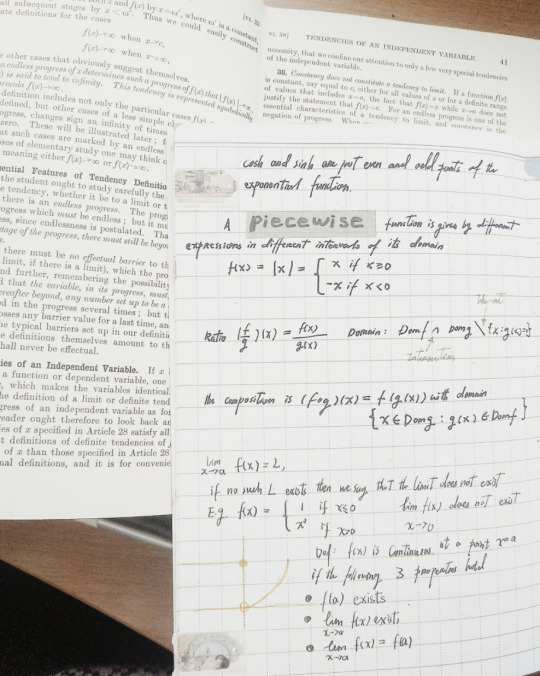 all subsequent stages by x < ω'. Thus we could easily construct
definitions for the cases
f(x)→∞ when x→c,
f(x)→∞ when x→∞,
other cases that obviously suggest themselves.
endless progress of x determines such a progress of f(x) that |f(x)|
) is said to tend to infinity. This tendency is represented symbolically
f(x)→∞.
definition includes not only the particular cases f(x)
defined, but other cases of a less simple
ogress, changes sign an infinity of times
zero. These will be illustrated later;
at such cases are marked by an endless
of elementary study one may think o
meaning either f(x)→∞ or f(x)→
ential Features of Tendency Definitio
the student ought to study carefully the
e tendency, whether it be to a limit or t
there is an endless progress. The prog
ogress which must be endless; but it mu
ss, since endlessness is postulated. Tha
stage of the progress, there must still be beyon
there must be no effectual barrier to th
limit, if there is a limit), which the pro
nd further, remembering the possibility
d that the variable, in its progress, must,
ereafter beyond, any number set up to be a
ed in the progress several times; but t
osses any barrier value for a last time, an
he typical barriers set up in our definiti
the definitions themselves amount to th
hall never be effectual.
ies of an Independent Variable. If x
a function or dependent variable, one
, which makes the variables identical.
he definition of a limit or definite tend
gress of an independent variable as for
reader ought therefore to look back ar
es of x specified in Article 28 satisfy all
t definitions of definite tendencies of
of x than those specified in Article 28
nal definitions, and it is for convenie
TENDENCIES OF AN INDEPENDENT VARIABLE 41
necessity, that we confine our attention to only a few very special tendencies
of the independent variable.
36. Constancy does not constitute a tendency to limit. If a function f(x)
is constant, say equal to c, either for all values of x or for a definite range
of values that includes x=a, the fact that f(x)=c while x→a does not
justify the statement that f(x)→c. For an endless progress is one of the
essential characteristics of a tendency to limit, and constancy is the
negation of progress.
cosh and sinh are just even and odd parts of the
exponential function.
A piecewise function is given by different
expressions in different intervals of its domain
f(x) = |x| = { x if x≥0
-x if x<0
Ratio (f/g)(x) = f(x)/g(x) Domain: Dom f ∩ Dom g \ {x: g(x)=0}
Intersection
The composition is (f∘g)(x) = f(g(x)) with domain
{x ∈ Dom g : g(x) ∈ Dom f}
lim x→a f(x) = L,
if no such L exists then we say that the limit does not exist
E.g. f(x) = { 1 if x≤0 lim f(x) does not exist
x² if x>0 x→0
Def: f(x) is Continuous at a point x=a
if the following 3 properties hold
• f(a) exists
• lim x→a f(x) exists
• lim x→a f(x) = f(a)